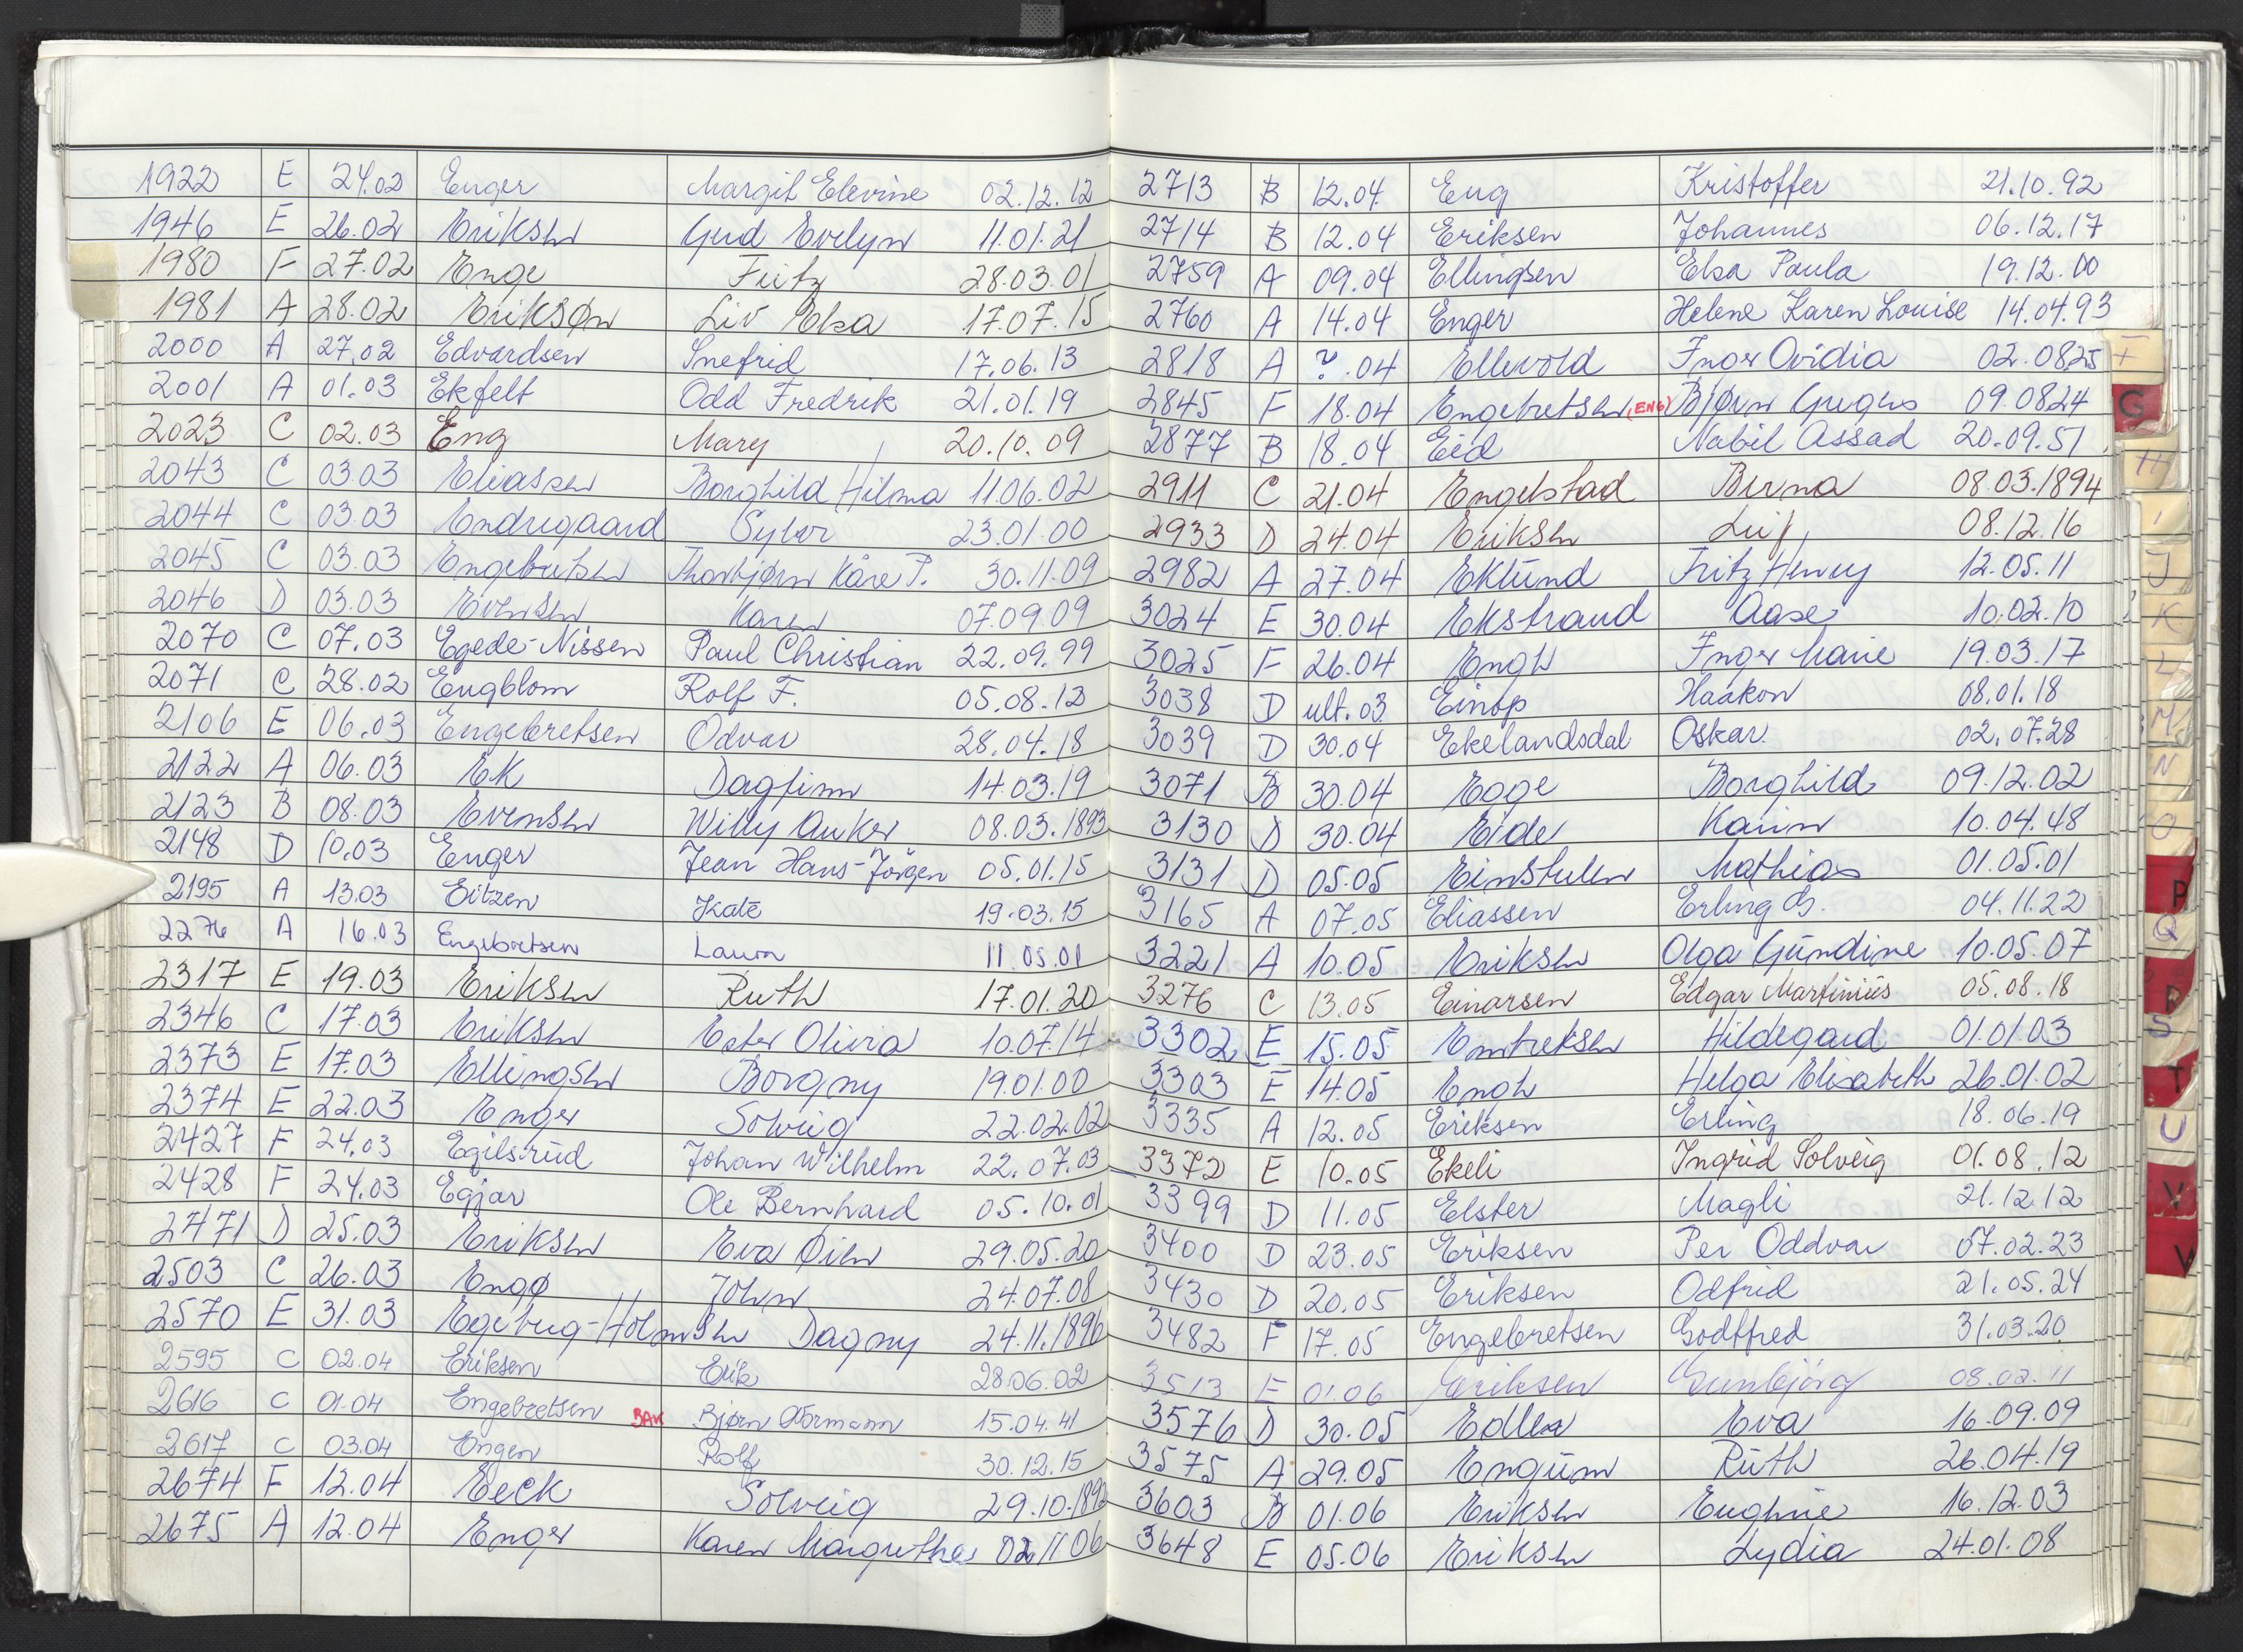 1922 E 24.02 Enger Margit Elevine 02.12.12
1946 E 26.02 Eriksen Gud Evelyn 11.01.21
1980 F 27.02 Enge Fritz 28.03.01
1981 A 28.02 Eriksøn Liv Elsa 17.07.15
2000 A 27.02 Edvardsen Snefrid 17.06.13
2001 A 01.03 Ekfelt Odd Fredrik 21.01.19
2023 C 02.03 Eng Mary 20.10.09
2043 C 03.03 Eliassen Borghild Hilma 11.06.02
2044 C 03.03 Endregaard 23.01.00
2045 C 03.03 Engebretsen Thorbjørn Kåre P. 30.11.09
2046 D 03.03 Evensen Karen 07.09.09
2070 C 07.03 Egede-Nissen Paul Christian 22.09.99
2071 C 28.02 Engblom Rolf F. 05.08.12
2106 E 06.03 Engebretsen Odvar 28.04.18
2122 A 06.03 Ek Dagfinn 14.03.19
2123 B 08.03 Evensen Willy Anker 08.03.1893
2148 D 10.03 Enger Jean Hans-Jörgen 05.01.15
2195 A 13.03 Eitzen Kate 19.03.15
2276 A 16.03 Engebretsen Laura 11.05.01
2317 E 19.03 Eriksen Ruth 17.01.20
2346 C 17.03 Eriksen Ester Olivia 10.07.14
2373 E 17.03 Ellingsen Borgny 19.01.00
2374 E 22.03 Enger Solveig 22.02.02
2427 F 24.03 Egilsrud Johan Wilhelm 22.07.03
2428 F 24.03 Egjar Ole Bernhard 05.10.01
2471 D 25.03 Eriksen Eva Øien 29.05.20
2503 C 26.03 Engø John 24.07.08
2570 E 31.03 Egeberg-Holmsen Dagny 24.11.1896
2595 C 02.04 Eriksen Erik 28.06.02
2616 C 01.04 Engebretsen BAK Bjørn Normann 15.04.41
2617 C 03.04 Engen Rolf 30.12.15
2674 F 12.04 Eeck Solveig 29.10.1892
2675 A 12.04 Enger Karen Margrethe 02.11 06
2713 B 12.04 Eng Kristoffer 21.10.92
2714 B 12.04 Eriksen Johannes 06.12.17
2759 A 09.04 Ellingsen Elsa Paula 19.12.00
2760 A 14.04 Enger Helene Karen Louise 14.04.93
2818 A ?.04 Ellevold Inger Ovidia 02.0825
2845 F 18.04 Engebretsen (ENG) Bjørn Gregers 09.0824
2877 B 18.04 Eid Nabil Assad 20.09.51
2911 C 21.04 Engelstad Birna 08.03.1894
2933 D 24.04 Eriksen Leif 08.12.16
2982 A 27.04 Eklund Fritz Henry 12.05.11
3024 E 30.04 Ekstrand Aase 10.02.10
3025 F 26.04 Engh Inger Marie 19.03.17
3038 D ult.03 Einop Haakon 08.01.18
3039 D 30.04 Ekelandsdal Oskar 02.07.28
3071 B 30.04 Egge Borghild 09.12.02
3130 D 30.04 Eide Karin 10.04.48
3131 D 05.05 Einstulen Mathias 01.05.01
3165 A 07.05 Eliassen Erling G. 04.11.22
3221 A 10.05 Eriksen Olga Gundine 10.05.07
3276 C 13.05 Einarsen Edgar Martinius 05.08.18
3302 E 15.05 Hildegard 01.01.03
3303 E 14.05 Engh Helga Elisabeth 26.01.02
3335 A 12.05 Eriksen Erling 18.06.19
3372 E 10.05 Ekeli Ingrid Solveig 01.08.12
3399 D 11.05 Elster Magli 21.12.12
3400 D 23.05 Eriksen Per Oddvar 07.02.23
3430 D 20.05 Eriksen Odfrid 21.05.24
3482 F 17.05 Engebretsen Godtfred 31.03.20
3513 E 01.06 Eriksen Gunbjörg 08.02.11
3576 D 30.05 Eva 16.09.09
3575 A 29.05 Engum Ruth 26.04.19
3603 B 01.06 Eriksen Eughnie 16.12.03
3648 E 05.06 Eriksen Lydia 24.01.08
F
G
H
I
J
K
L
M
N
O
P
Q
R
S
T
U
V